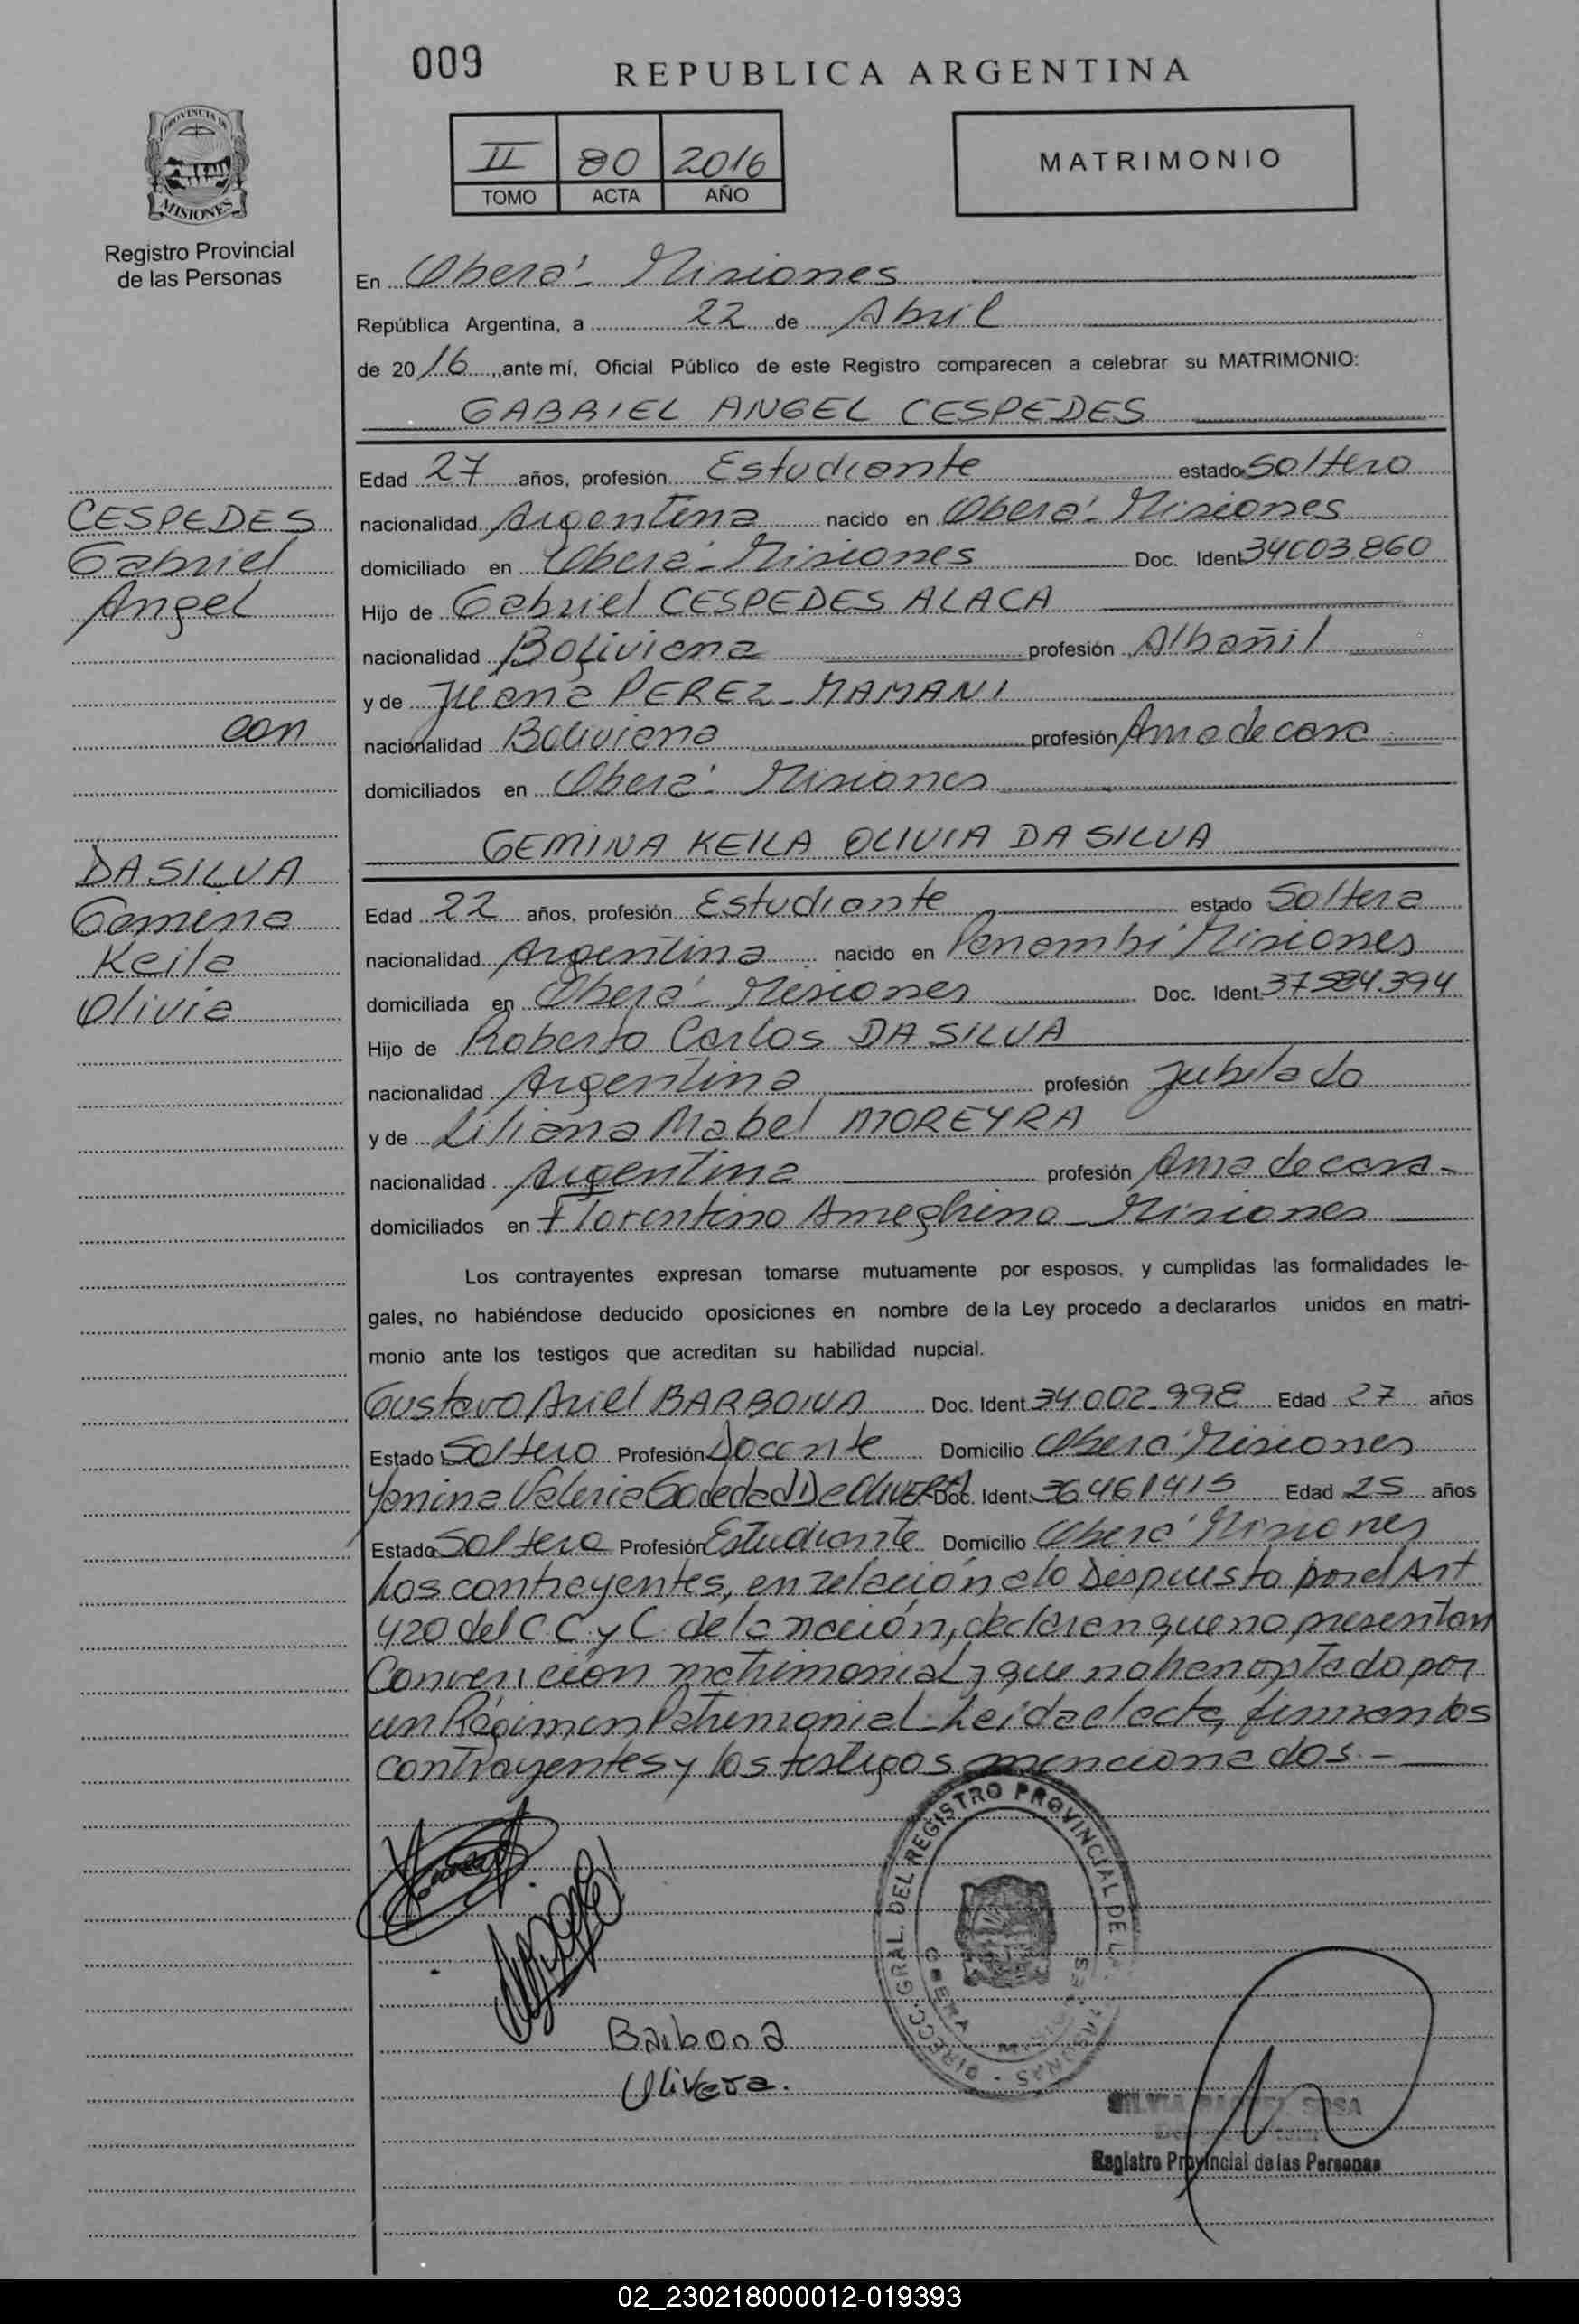 009
REPUBLICA ARGENTINA
PROVINCIA DE
MISIONES
Registro Provincial
de las Personas
II 80 2016
TOMO ACTA AÑO
MATRIMONIO
En Oberá - Misiones
República Argentina, a 22 de Abril
de 2016, ante mí, Oficial Público de este Registro comparecen a celebrar su MATRIMONIO:
GABRIEL ANGEL CESPEDES
CESPEDES
Gabriel
Angel
con
DA SILVA
Gemina
Keila
Olivia
Edad 27 años, profesión Estudiante estado Soltero
nacionalidad Argentina nacido en Oberá - Misiones
domiciliado en Oberá - Misiones Doc. Ident 34003.860
Hijo de Gabriel CESPEDES ALACA
nacionalidad Boliviana profesión Albañil
y de Juana PEREZ - MAMANI
nacionalidad Boliviana profesión Ama de casa
domiciliados en Oberá - Misiones
GEMINA KEILA OLIVIA DA SILVA
Edad 22 años, profesión Estudiante estado Soltera
nacionalidad Argentina nacido en Panambí Misiones
domiciliada en Oberá - Misiones Doc. Ident 37.584.394
Hijo de Roberto Carlos DA SILVA
nacionalidad Argentina profesión Jubilado
y de Liliana Mabel MOREYRA
nacionalidad Argentina profesión Ama de casa -
domiciliados en Florentino Ameghino - Misiones
Los contrayentes expresan tomarse mutuamente por esposos, y cumplidas las formalidades le-
gales, no habiéndose deducido oposiciones en nombre de la Ley procedo a declararlos unidos en matri-
monio ante los testigos que acreditan su habilidad nupcial.
Gustavo Ariel BARBONA Doc. Ident 34.002.998 Edad 27 años
Estado Soltero Profesión Docente Domicilio Oberá Misiones
Yanina Valeria Soledad De OLIVERA Doc. Ident. 36461415 Edad 25 años
Estado Soltera Profesión Estudiante Domicilio Oberá Misiones
Los contrayentes, en relación a lo Dispuesto por el Art
420 del C C y C. de la nación, declaran que no presentan
Convención matrimonial y que no han optado por
un Régimen Patrimonial. Leída el acta, firman los
contrayentes y los testigos mencionados. -
DIRECC. GRAL. DEL REGISTRO PROVINCIAL DE LAS PERSONAS
MISIONES
Barbona
Olivera.
SILVIA RAQUEL SOSA
Registro Provincial de las Personas
02_230218000012-019393